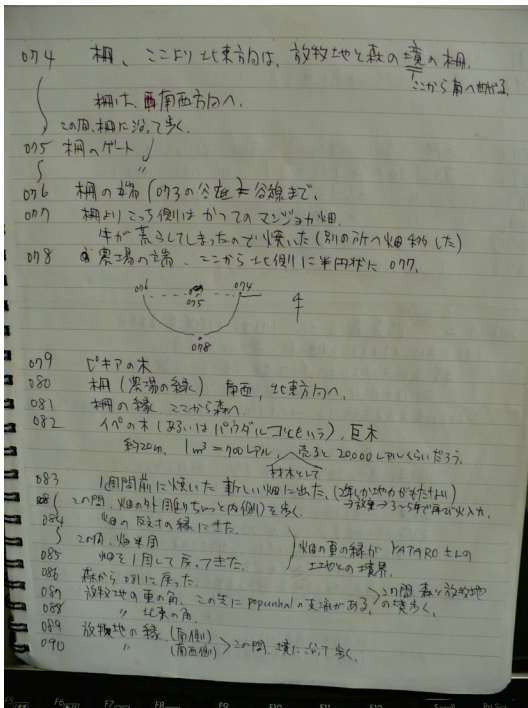 074 柵、ここより北東方向は、放牧地と森の境の柵.
ここから南へ曲がる.
柵は、南西方向へ.
この間、柵に沿って歩く.
075 柵のゲート 〃
076 柵の端 (073の谷底 谷線まで.
077 柵よりこっち側はかつてのマンジョカ畑.
牛が荒らしてしまったので焼いた (別の所へ畑移した)
078 農場の端、ここから北側に半円状に077.
076 075 074
078
079 ピキアの木
080 柵 (農場の縁) 南西, 北東方向へ.
081 柵の縁. ここから森へ.
082 イペの木 (あるいはパウダルコともいう), 巨木
約20m. 1m³=700レアル, 売ると20000レアルくらいだろう.
材木として
083 1週間前に焼いた新しい畑に出た. (2年しか地力がもたない)
→放棄→3~5年で再び火入れ.
この間、畑の外周(ちょっと内側)を歩く.
084 畑の反対の縁にきた.
この間、畑半周
085 畑を1周して戻ってきた.
畑の東の縁がYATAROさんの土地との境界.
086 森から081に戻った.
087 放牧地の東の角、この先にpopunhalの支流がある.
088 〃 北東の角.
この間、森と放牧地の境歩く.
089 放牧地の縁 (南側)
090 〃 (南西側)
この間、境に沿って歩く.
F5 F6 F7 F8 F9 F10 F11 F12 Scroll PrtSc